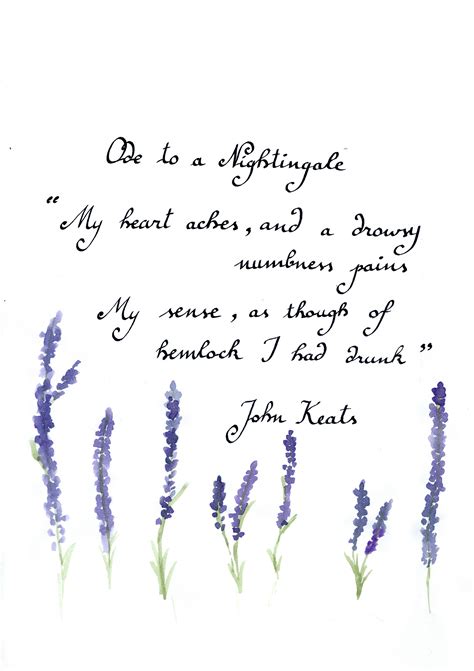 Ode to a Nightingale
"My heart aches, and a drowsy
numbness pains
My sense, as though of
hemlock I had drunk"
John Keats